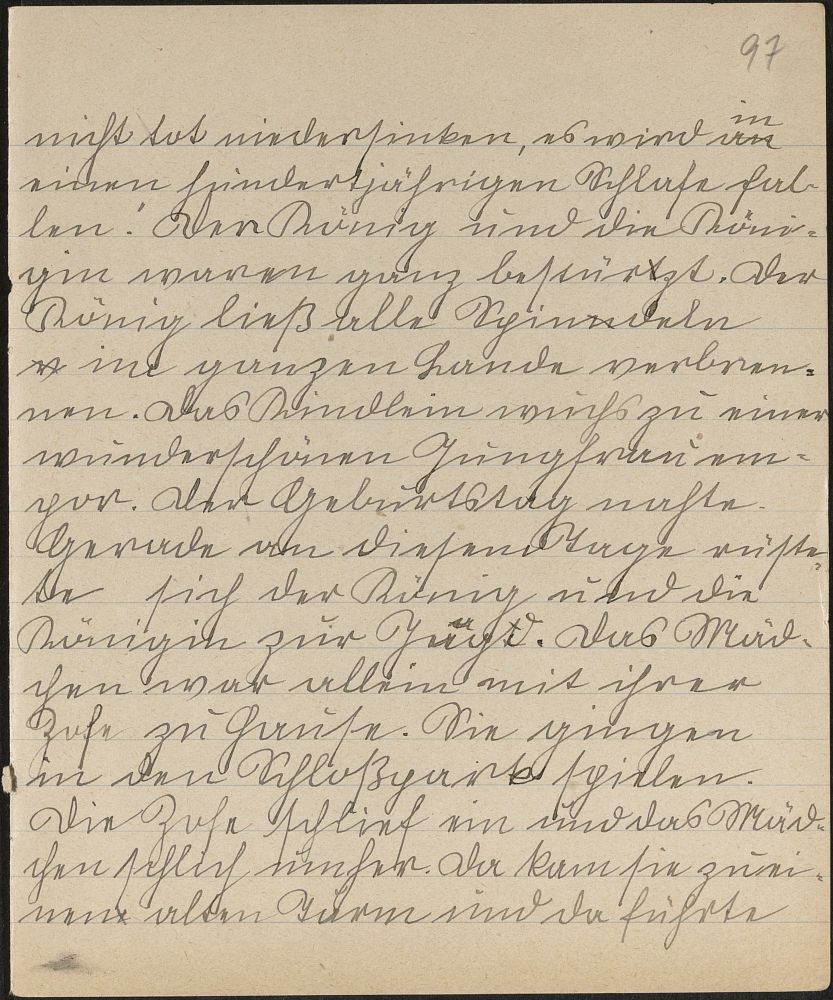 97
nicht tot niedersinken, es wird in
einen hundertjährigen Schlafe fal-
len! Der König und die Köni-
gin waren ganz bestürtzt. Der
König ließ alle Spindeln
im ganzen Lande verbren-
nen. Das Kindlein wuchs zu einer
wunderschönen Jungfrau em-
por. Der Geburtstag nahte.
Gerade an diesem Tage rüste-
te sich der König und die
Königin zur Jagd. Das Mäd-
chen war allein mit ihrer
Zofe zu Hause. Sie gingen
in den Schloßpark spielen.
Die Zofe schlief ein und das Mäd-
chen schlich umher. Da kam sie zu ei-
nem alten Turm und da führte